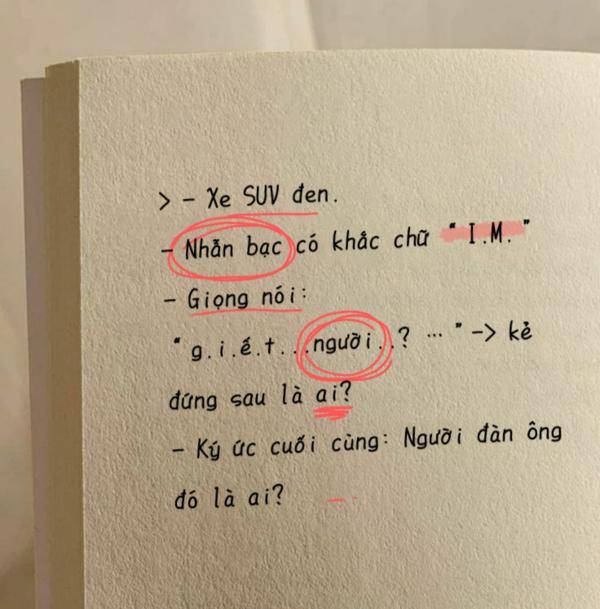 > - Xe SUV đen.
- Nhẫn bạc có khắc chữ " I.M. "
- Giọng nói:
" g.i.ế.t...người..? … " -> kẻ
đứng sau là ai?
- Ký ức cuối cùng: Người đàn ông
đó là ai?